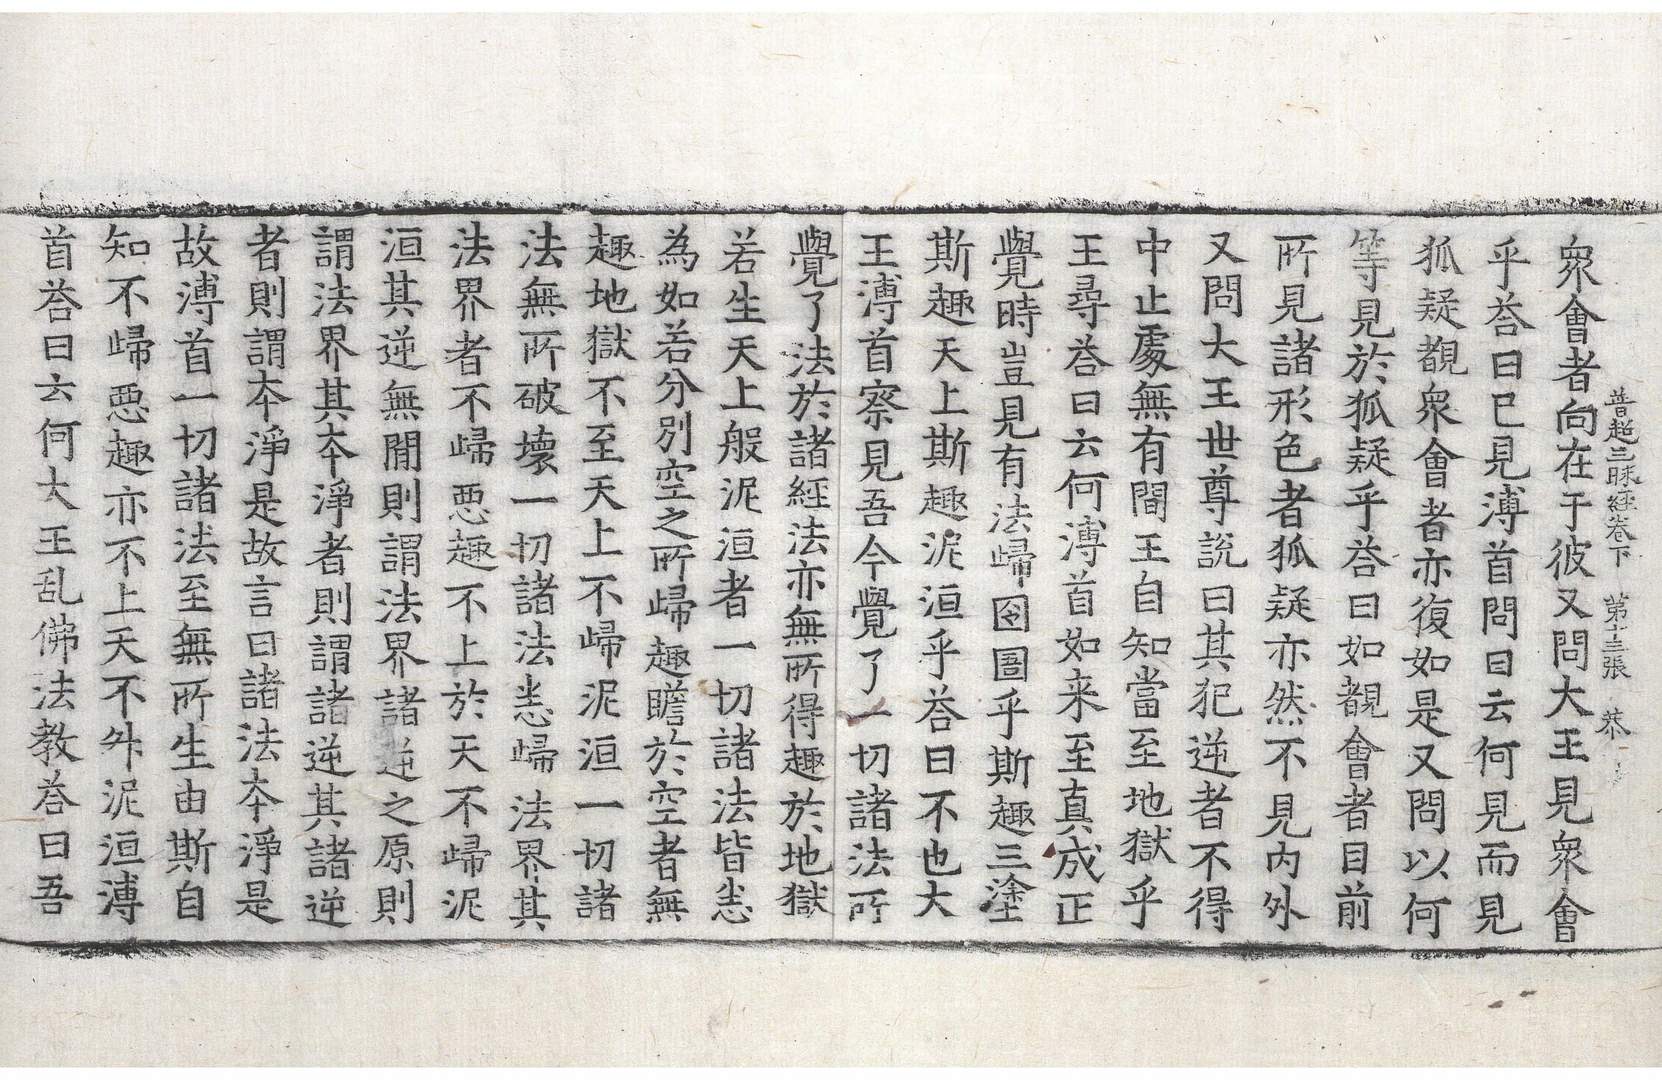 普超三昧經卷下　第十三張　恭
衆會者向在于彼又問大王見衆會
乎荅曰已見溥首問曰云何見而見
狐疑覩衆會者亦復如是又問以何
等見於狐疑乎荅曰如覩會者目前
所見諸形色者狐疑亦然不見內外
又問大王世尊說曰其犯逆者不得
中止處無有間王自知當至地獄乎
王尋荅曰云何溥首如来至真成正
覺時豈見有法歸囹圄乎斯趣三塗
斯趣天上斯趣泥洹乎荅曰不也大
王溥首察見吾今覺了一切諸法所
覺了法於諸經法亦無所得趣於地獄
若生天上般泥洹者一切諸法皆悉
為如若分別空之所歸趣瞻於空者無
趣地獄不至天上不歸泥洹一切諸
法無所破壞一切諸法悉歸法界其
法界者不歸惡趣不上於天不歸泥
洹其逆無閒則謂法界諸逆之原則
謂法界其本淨者則謂諸逆其諸逆
者則謂本淨是故言曰諸法本淨是
故溥首一切諸法至無所生由斯自
知不歸惡趣亦不上天不升泥洹溥
首荅曰云何大王乱佛法教荅曰吾